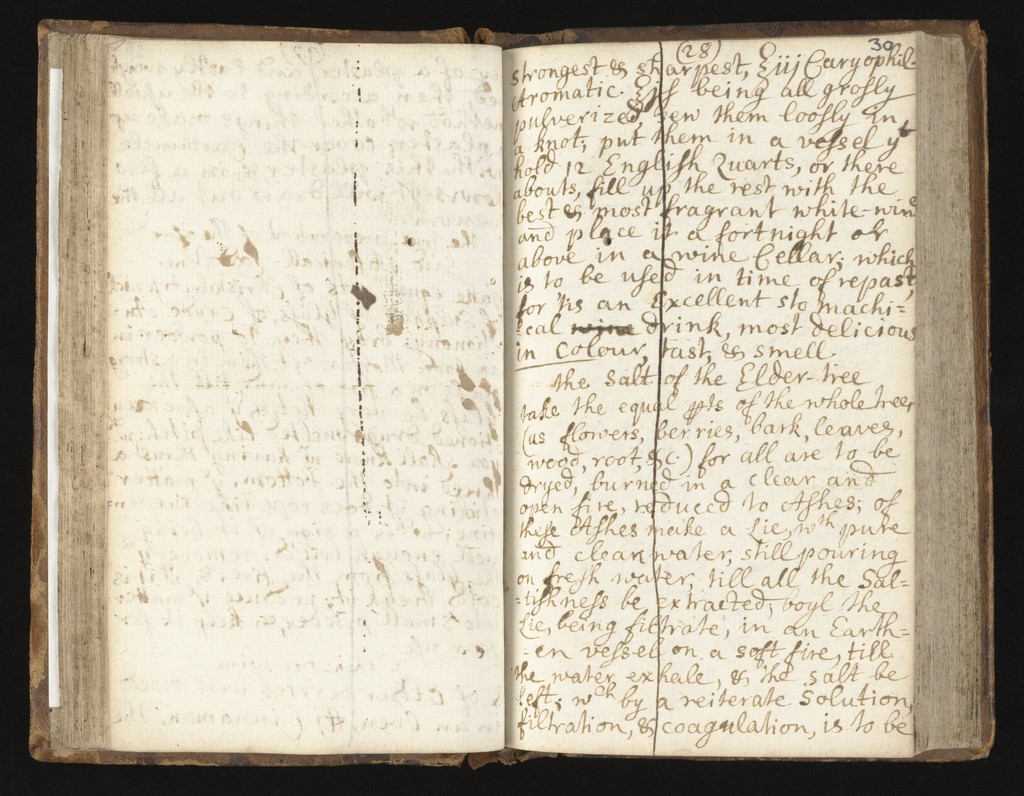 (28)
30
strongest & sharpest, ℥iij Caryophil-
Aromatic. ℥jß being all grosly
pulverized, sew them loosly in
a knot; put them in a vessel yt
hold 12 English Quarts, or there
abouts, fill up the rest with the
best & most fragrant white-wine
and place it a fortnight or
above in a wine Cellar; which
is to be used in time of repast,
for 'tis an Excellent stomachi=
=cal wine drink, most delicious
in Colour, tast, & smell.
the Salt of the Elder-tree
take the equal pts of the whole tree,
(as flowers, berries, bark, leaves,
wood, root, &c.) for all are to be
dryed, burned in a clear and
open fire, reduced to Ashes; of
these Ashes make a Lie, wth pure
and clear water, still pouring
on fresh water, till all the Sal=
=tishness be extracted; boyl the
Lie, being filtrate, in an Earth=
=en vessel on a soft fire, till
the water exhale, & the salt be
left; wch by a reiterate Solution,
filtration, & coagulation, is to be